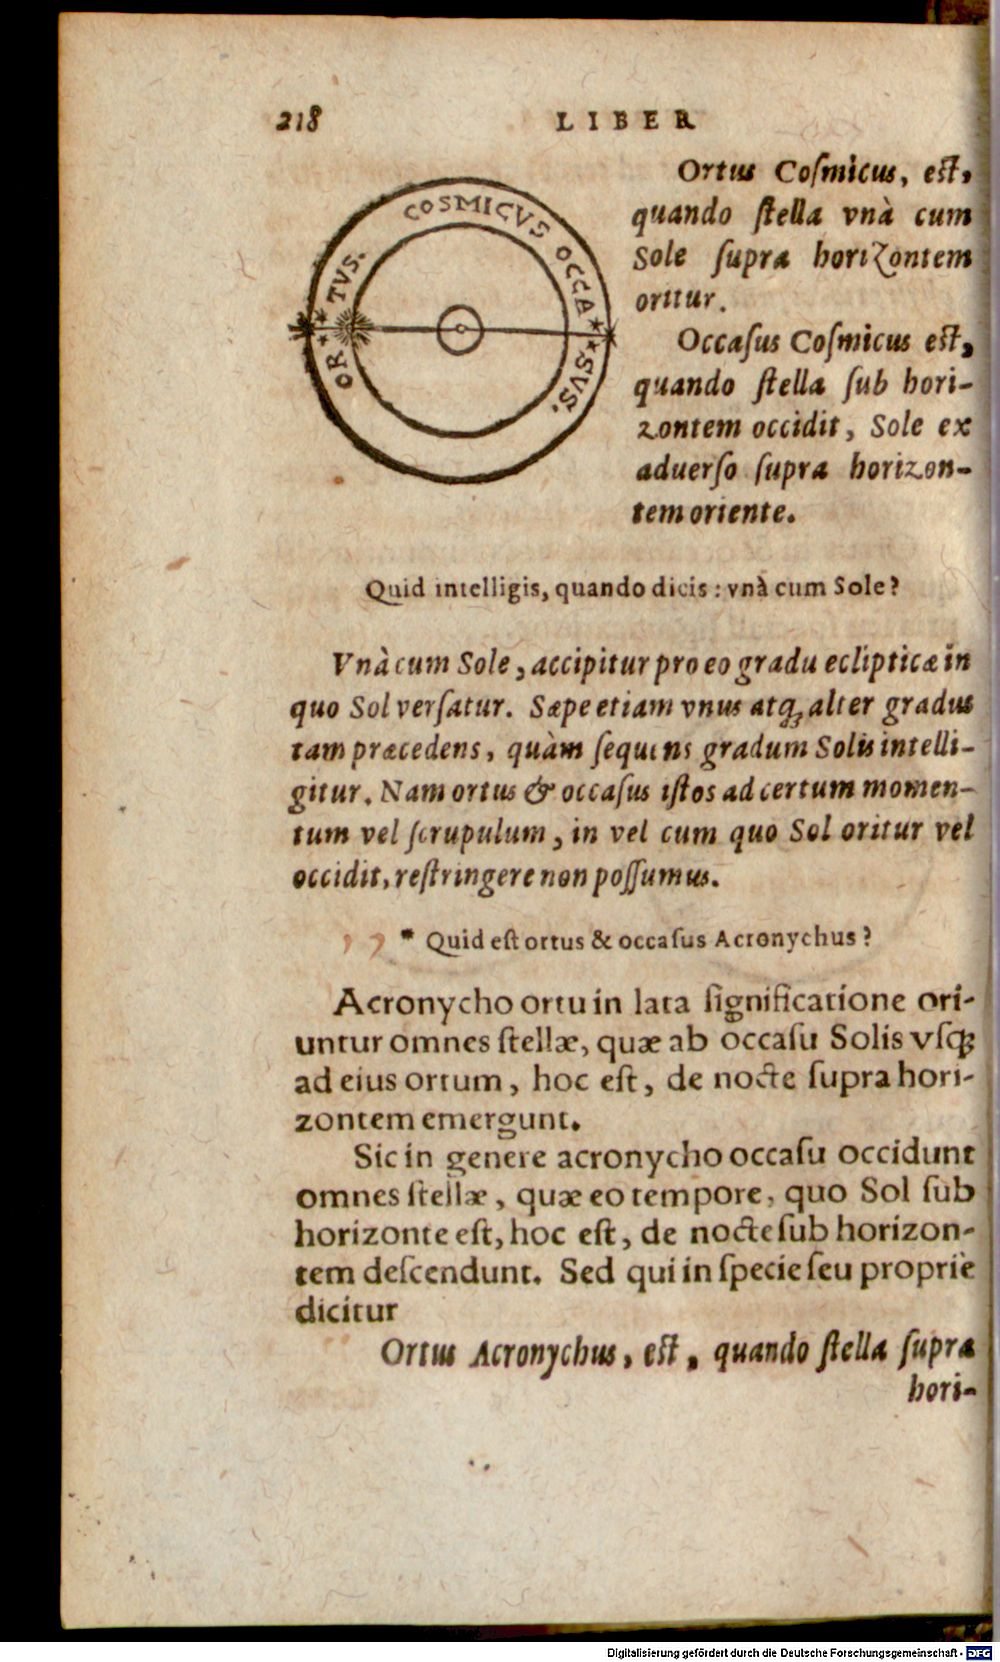 218 LIBER
COSMICVS OCCA
SVS.
OR TVS.
Ortus Coſmicus, eſt,
quando ſtella vnà cum
Sole ſupra horizontem
oritur.
Occaſus Coſmicus eſt,
quando ſtella ſub hori-
zontem occidit, Sole ex
aduerſo ſupra horizon-
tem oriente.
Quid intelligis, quando dicis: vnà cum Sole?
Vnà cum Sole, accipitur pro eo gradu eclipticæ in
quo Sol verſatur. Sæpe etiam vnus atq́; alter gradus
tam præcedens, quàm ſequens gradum Solis intelli-
gitur. Nam ortus & occaſus iſtos ad certum momen-
tum vel ſcrupulum, in vel cum quo Sol oritur vel
occidit, reſtringere non poſſumus.
* Quid eſt ortus & occaſus Acronychus?
Acronycho ortu in lata ſignificatione ori-
untur omnes ſtellæ, quæ ab occaſu Solis vſq;
ad eius ortum, hoc eſt, de nocte ſupra hori-
zontem emergunt.
Sic in genere acronycho occaſu occidunt
omnes ſtellæ, quæ eo tempore, quo Sol ſub
horizonte eſt, hoc eſt, de nocte ſub horizon-
tem deſcendunt. Sed qui in ſpecie ſeu propriè
dicitur
Ortus Acronychus, eſt, quando ſtella ſupra
hori-
Digitalisierung gefördert durch die Deutsche Forschungsgemeinschaft - DFG